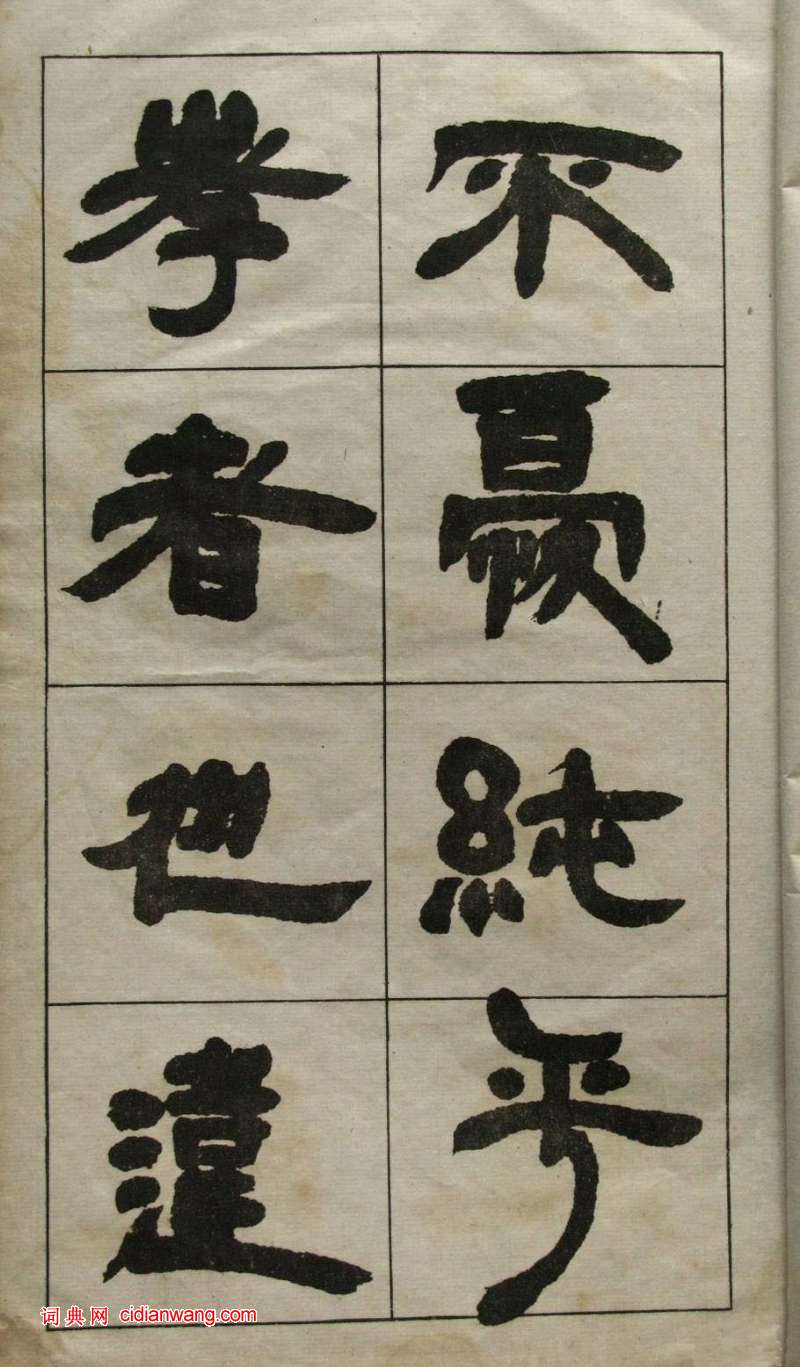 不憂純乎
孝者也違
词典网 cidianwang.com